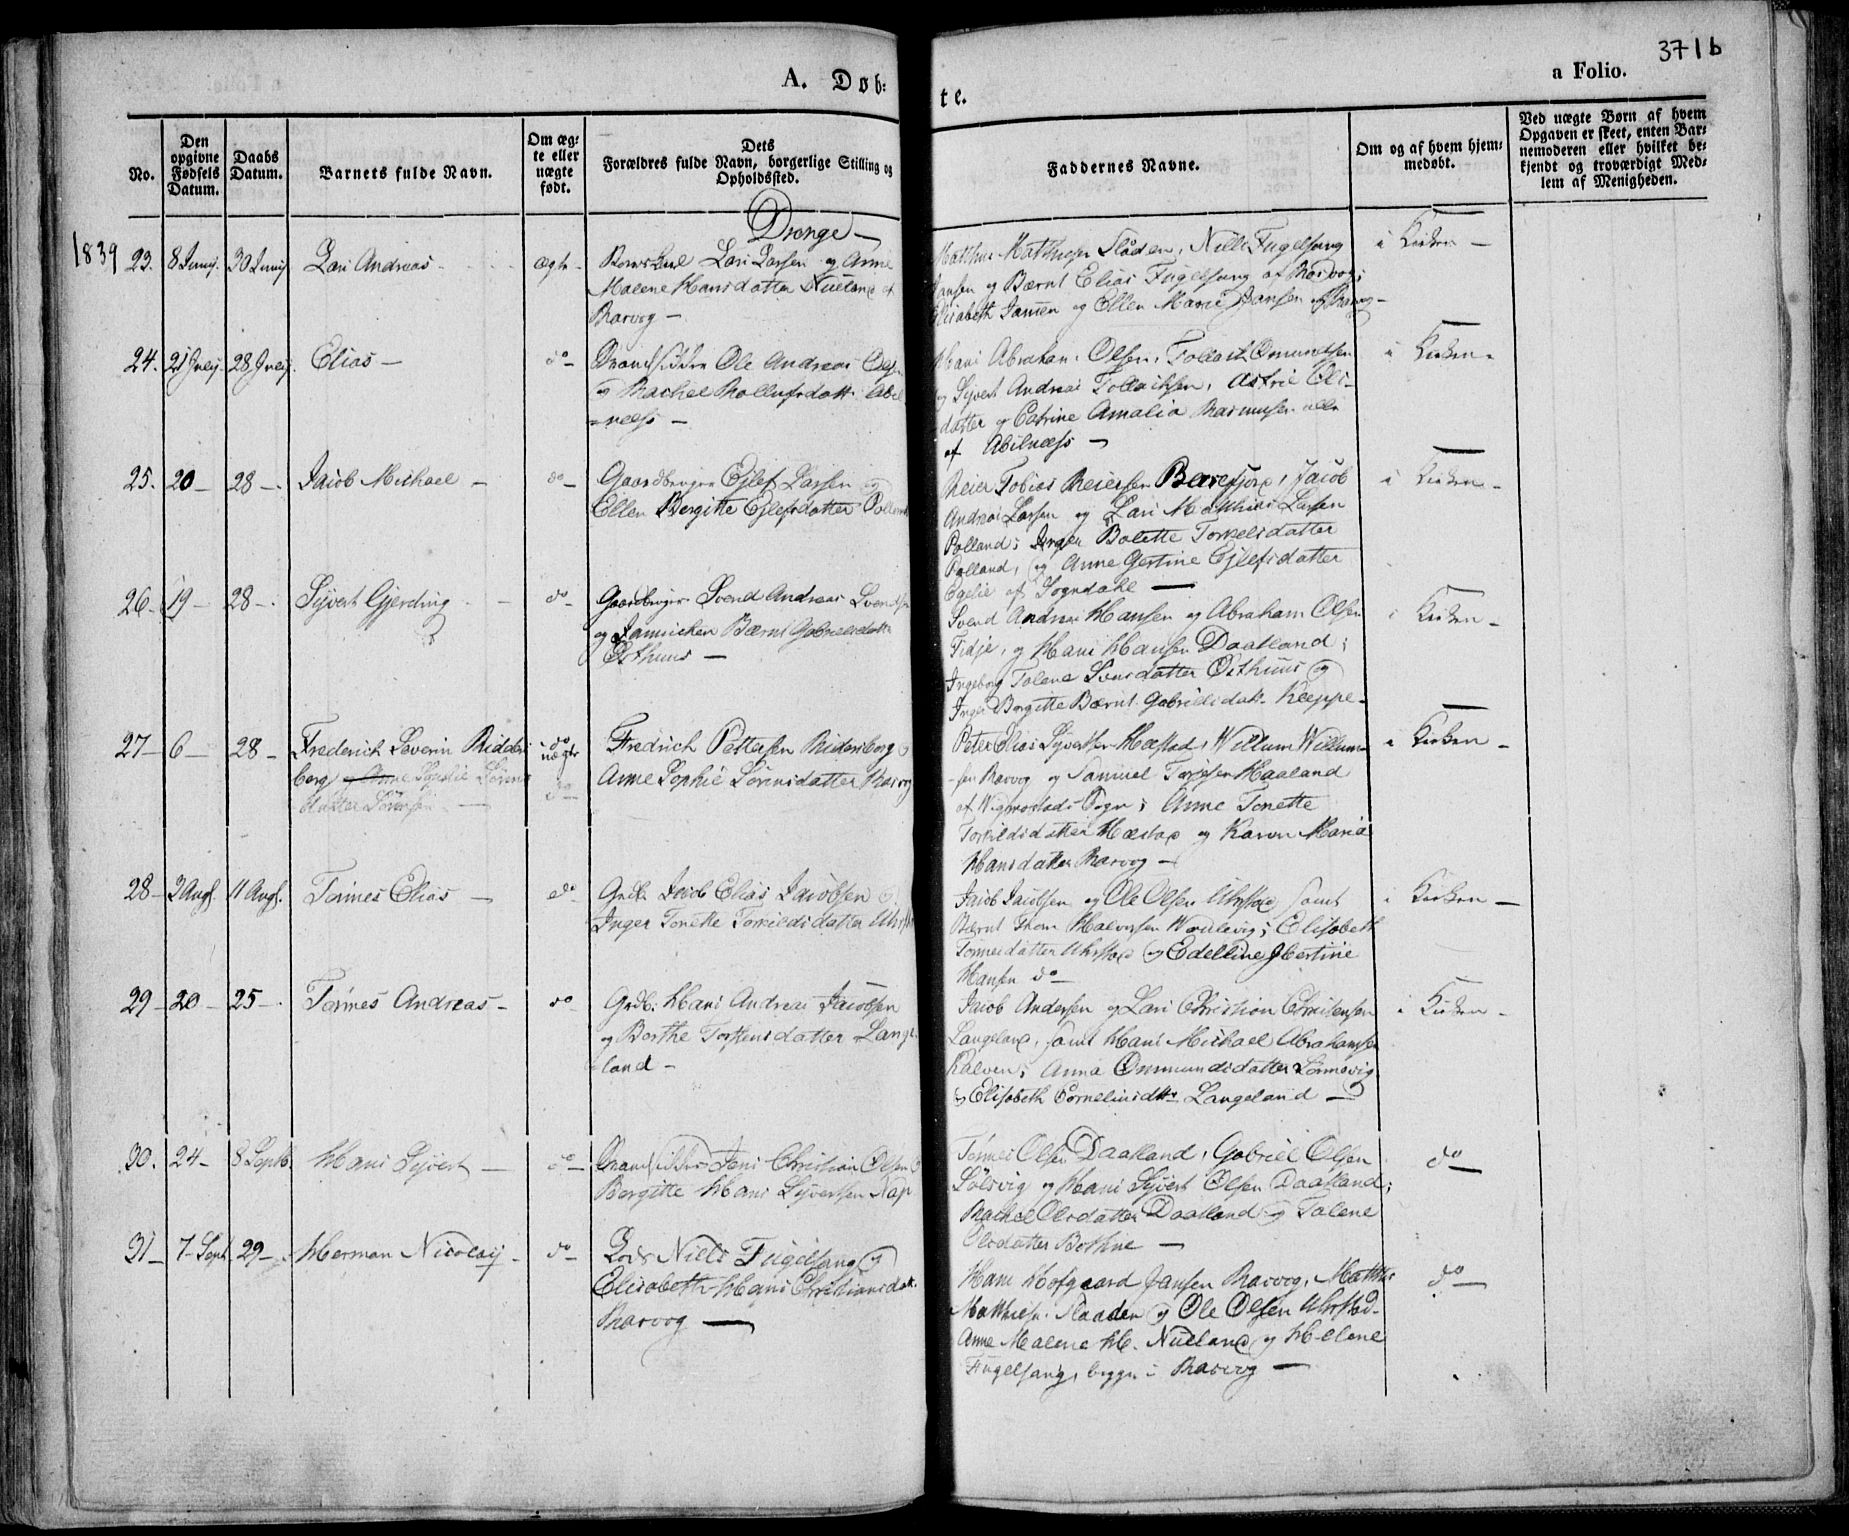 A. Døb-
te.
a Folio.
371 b
No.
Den opgivne Fødsels Datum.
Daabs Datum.
Barnets fulde Navn.
Om ægte eller uægte født.
Dets Forældres fulde Navn, borgerlige Stilling og Opholdssted.
Faddernes Navne.
Om og af hvem hjemmedøbt.
Ved uægte Børn af hvem Opgaven er skeet, enten Barnemoderen eller hvilket bekjendt og troværdigt Medlem af Menigheden.
Drenge
1839
23. 8 Junij. 30 Junij. Lars Andreas ægte
Lars Larsen og Anne
Malene Hansdatter Nueland af
Rasvog
Matthis Matthisen Flåden, Niels Fugelsang
Jansen og Bærnt Elias Fugelsang af Rasvog;
Elisabeth Jansen og Ellen Marie Jansen af Rasvog
i Kirken
24. 21 Julij. 28 Julij. Elias do
Ole Andreas
og Rachel Rolleifsdatt. Abel
næss
Hans Abraham Olsen, Tollach Omundsen
og Sijvert Andreas Tollachsen, Astrie Ols-
datter og Catrine Amalia Rasmusen alle
af Abelnæss
i Kirken
25. 20 28 Jacob Michael do
Gaardbruger Ejlef Larsen og
Ellen Bergitte Ejlefsdatter Rolland
Reier Tobias Reiersen Barefjord, Jacob
Andreas Larsen og Lars Matthias Larsen
Rolland; Inger Bolette Torkelsdatter
Rolland, og Anne Gertine Ejlefsdatter
Egelie af Sogndahl
i Kirken
26 19 28 Sijvert Gjerding do
Gaardbruger Svend Andreas Svendsen
og Jannicken Bærnt Gabrielsdatt.
Østhuus
Svend Andreas Hansen og Abraham Olsen
Tidje, og Hans Hansen Daatland;
Ingeborg Talene Svensdatter Østhuus og
Inger Bergitte Bærnt Gabrielsdatt. Kleppe
i Kirken
27 6 28 Frederich Severin Ridders
berg Anne Sophie Sørens
datter Sørensen
do uægte do
Fredrich Pettersen Ridersberg og
Anne Sophie Sørensdatter Rasvog
Peter Elias Sijvertsen Hæstad, Willum Willum-
sen Rasvog og Samuel Tarjesen Haaland
af Vigmostads Sogn; Anne Tonette
Torkildsdatter Hæstad og Karen Maria
Hansdatter Rasvog
i Kirken
28 3 Augs. 11 Augs. Tønnes Elias do
Grdb. Jacob Elias Jacobsen og
Inger Tonette Torkildsdatter Uhrstad
Jacob Jacobsen og Ole Olsen Uhrstad samt
Bærnt Thom Halversen Waulevig; Elisabeth
Tønnesdatter Uhrstad og Edelline Bertine
Hansen do
i Kirken
29 20 25 Tønnes Andreas do
Grdb. Hans Andreas Jacobsen
og Berthe Torstensdatter Lange
land
Jacob Andersen og Lars Christian Christensen
Langeland, samt Hans Michael Abrahamsen
Kalven; Anna Ommundsdatter Lønnevig
og Elisabeth Cornelius dtr. Langeland
i Kirken
30. 24 8 Septb. Hans Sijvert do
Jens Christian Olsen og
Bergitte Hans Sijvertsen Rap
Tønnes Olsen Daatland, Gabriel Olsen
Sølsvig og Hans Sijvert Olsen Daatland;
Rachel Olsdatter Daatland og Talene
Olsdatter Bothne
do
31 7 Sept 29 Herman Nicolaij do
Lods Niels Fugelsang og
Elisabeth Hans Christiansdatt.
Rasvog
Hans Hofgaard Jansen Rasvog, Matthis
Matthisen Flaaden og Ole Olsen Uhrstad.
Anne Malene H. Nueland og Helene
Fugelsang, begge i Rasvog
do